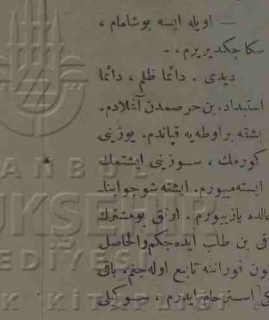 — اویله ایسه بوشامام ،
سكا چكدیریرم . .
دیدی . دائما ظلم ، دائما
استبداد. بن حرصمدن آغلادم.
بشقه بر اوطه‌یه قپاندم. یوزینی
كورمك ، سوزینی ایشتمك
ایسته‌میورم. ایشته شو جوابنا
حالده یازییورم . ارتق بومشترك
بن طلب ایده‌جكم. والحاصل
تابع اوله‌جغم. باقی
استرحام ایدرم ، سوكیلی